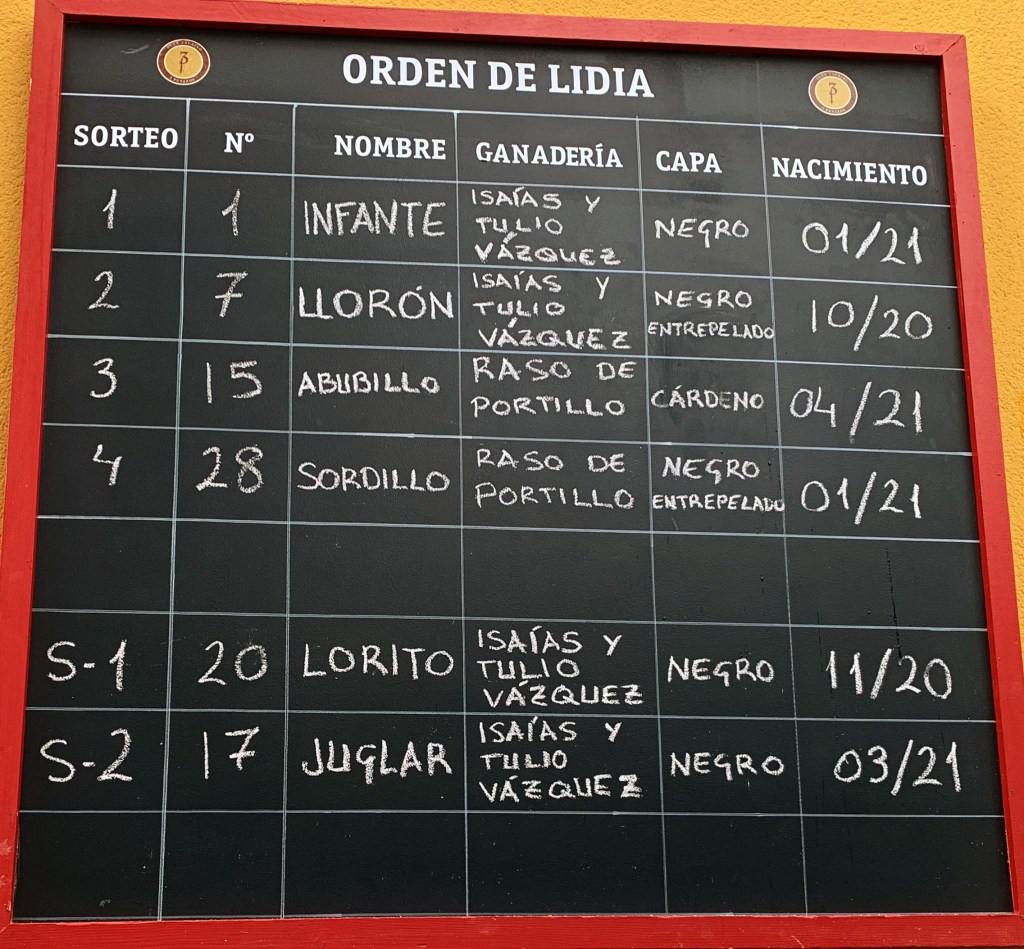 ORDEN DE LIDIA
SORTEO Nº NOMBRE GANADERÍA CAPA NACIMIENTO
1 1 INFANTE ISAÍAS Y TULIO VÁZQUEZ NEGRO 01/21
2 7 LLORÓN ISAÍAS Y TULIO VÁZQUEZ NEGRO ENTREPELADO 10/20
3 15 ABUBILLO RASO DE PORTILLO CÁRDENO 04/21
4 28 SORDILLO RASO DE PORTILLO NEGRO ENTREPELADO 01/21
S-1 20 LORITO ISAÍAS Y TULIO VÁZQUEZ NEGRO 11/20
S-2 17 JUGLAR ISAÍAS Y TULIO VÁZQUEZ NEGRO 03/21